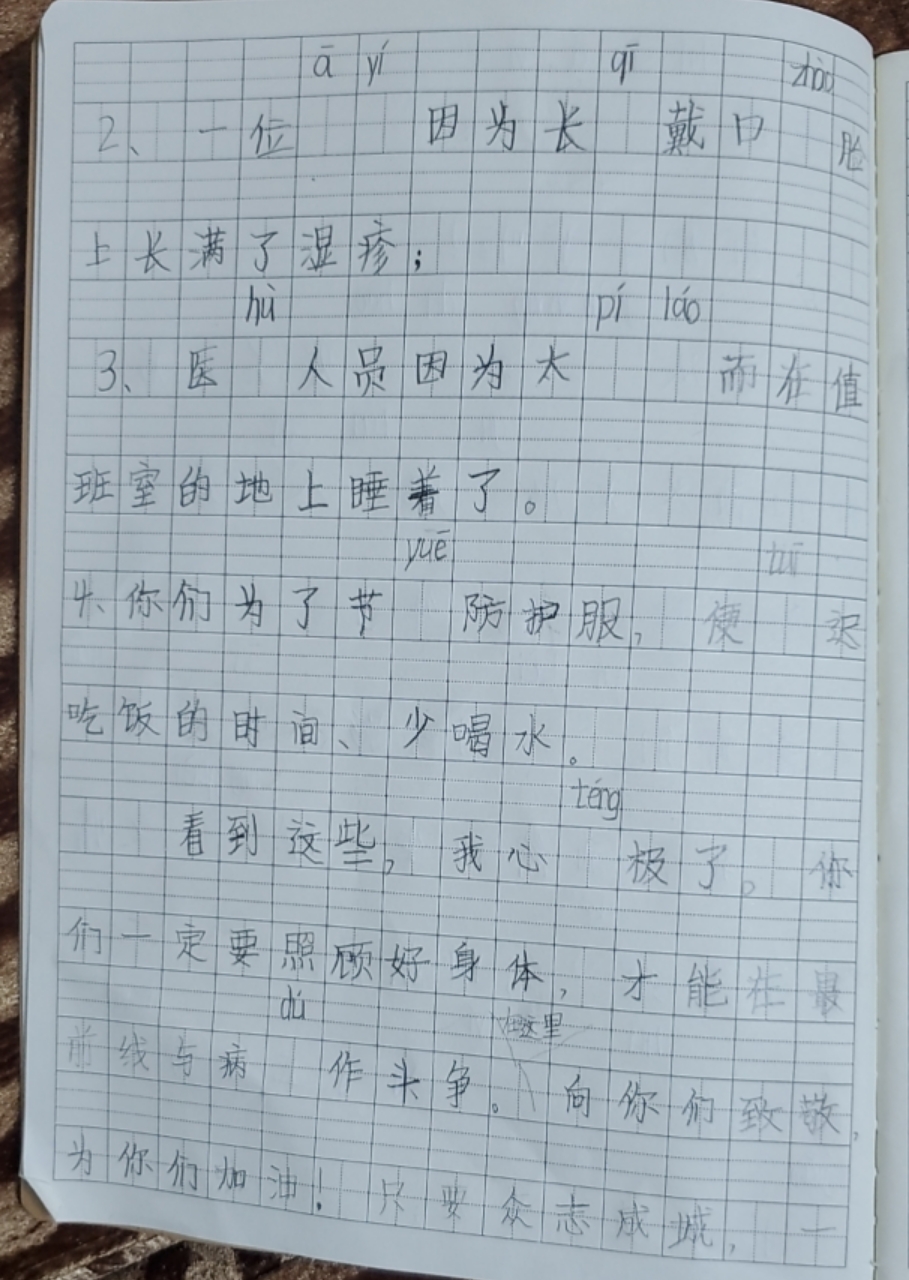 ā yí qī zhào
2、一位 因为长 戴口 脸
上长满了湿疹；
hù pí láo
3、医 人员因为太 而在值
班室的地上睡着了。
yuē tuī
4、你们为了节 防护服，便 迟
吃饭的时间、少喝水。
téng
看到这些，我心 极了。你
们一定要照顾好身体，才能在最
dú 在这里
前线与病 作斗争。向你们致敬，
为你们加油！只要众志成城，一